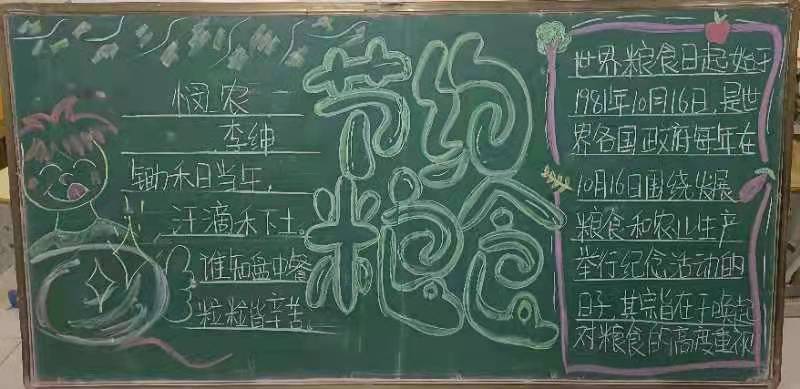 悯农
李绅
锄禾日当午,
汗滴禾下土。
谁知盘中餐
粒粒皆辛苦。
节约
粮食
世界粮食日起始于
1981年10月16日,是世
界各国政府每年在
10月16日围绕发展
粮食和农业生产
举行纪念活动的
日子,其宗旨在于唤起
对粮食的高度重视